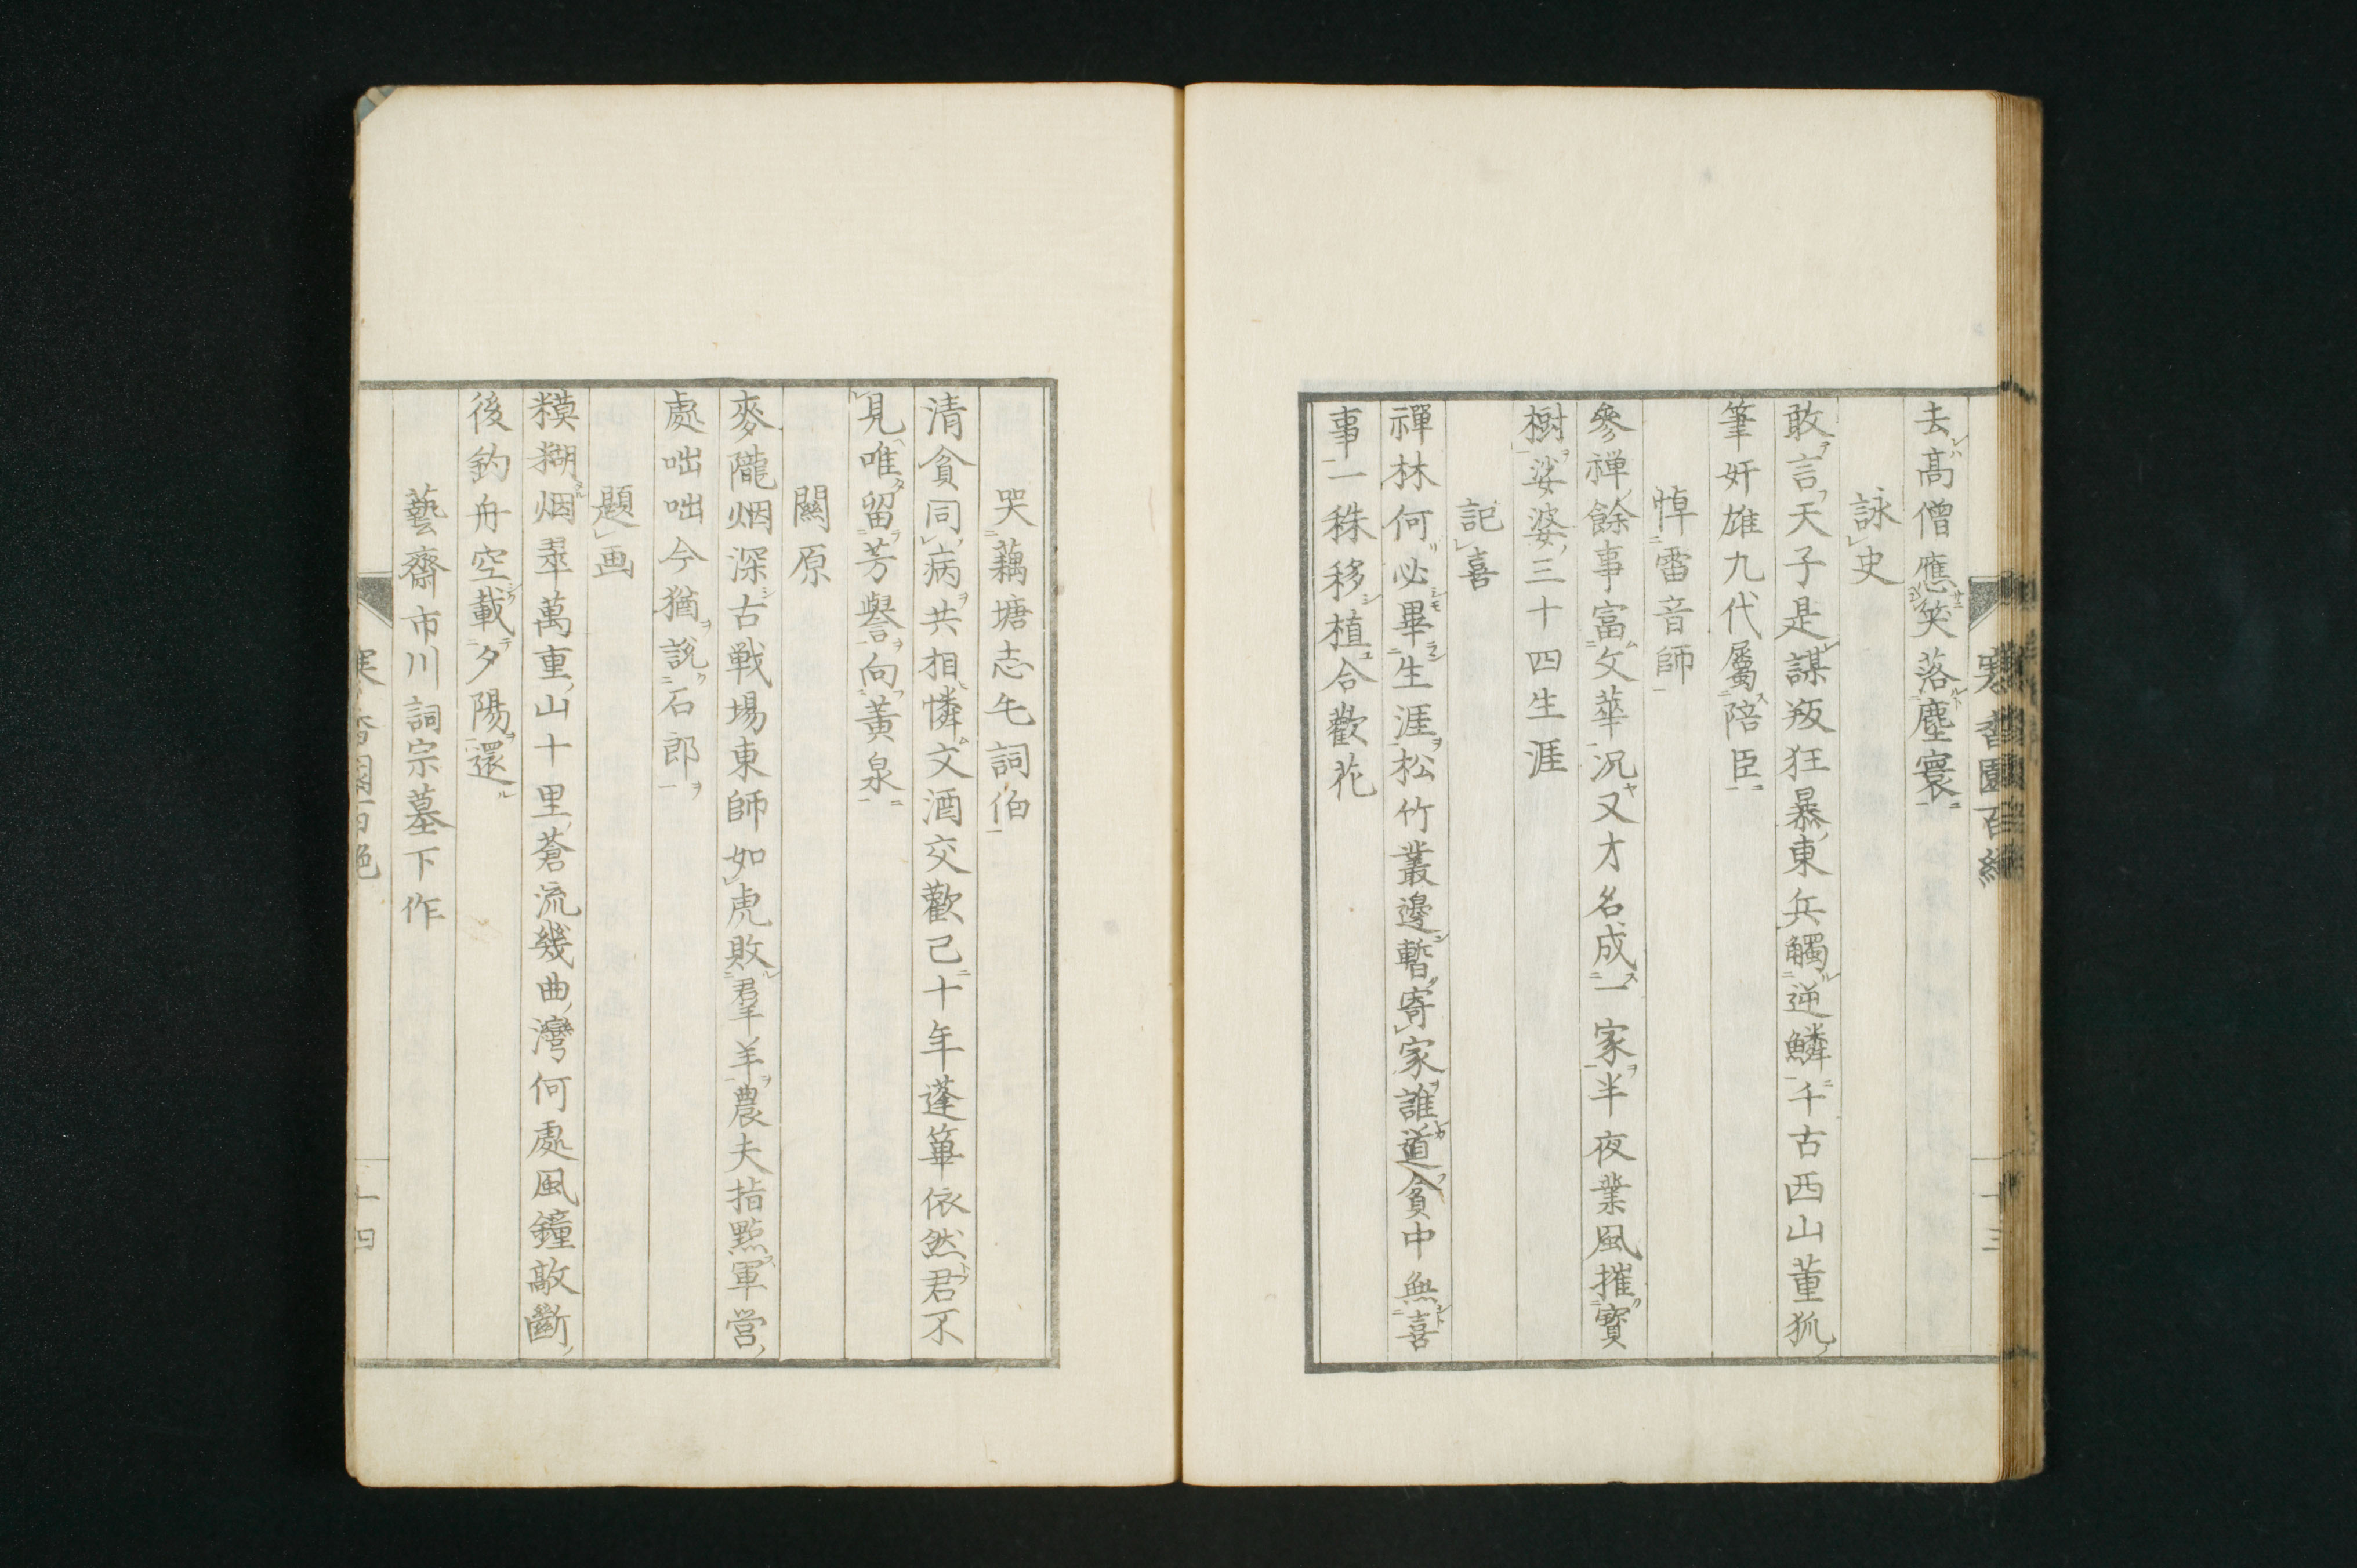 寒香園百絶
十三
去高僧應笑落塵寰
詠史
敢言天子是謀叛狂暴東兵觸逆鱗千古西山董狐
筆奸雄九代屬陪臣
悼雷音師
參禅餘事富文華況又才名成一家半夜業風摧寳
樹娑婆三十四生涯
記喜
禪林何必畢生涯松竹叢邊暫寄家誰道貪中無喜
事一株移植合歡花
哭藕塘志毛詞伯
清貧同病共相憐文酒交歡已十年蓬蓽依然君不
見唯留芳譽向黄泉
關原
麥隴烟深古戦場東師如虎敗羣羊農夫指點軍営
處咄咄今猶説石郎
題画
糢糊烟翠萬重山十里蒼流幾曲灣何處風鐘敲斷
後釣舟空載夕陽還
藝齋市川詞宗墓下作
十四